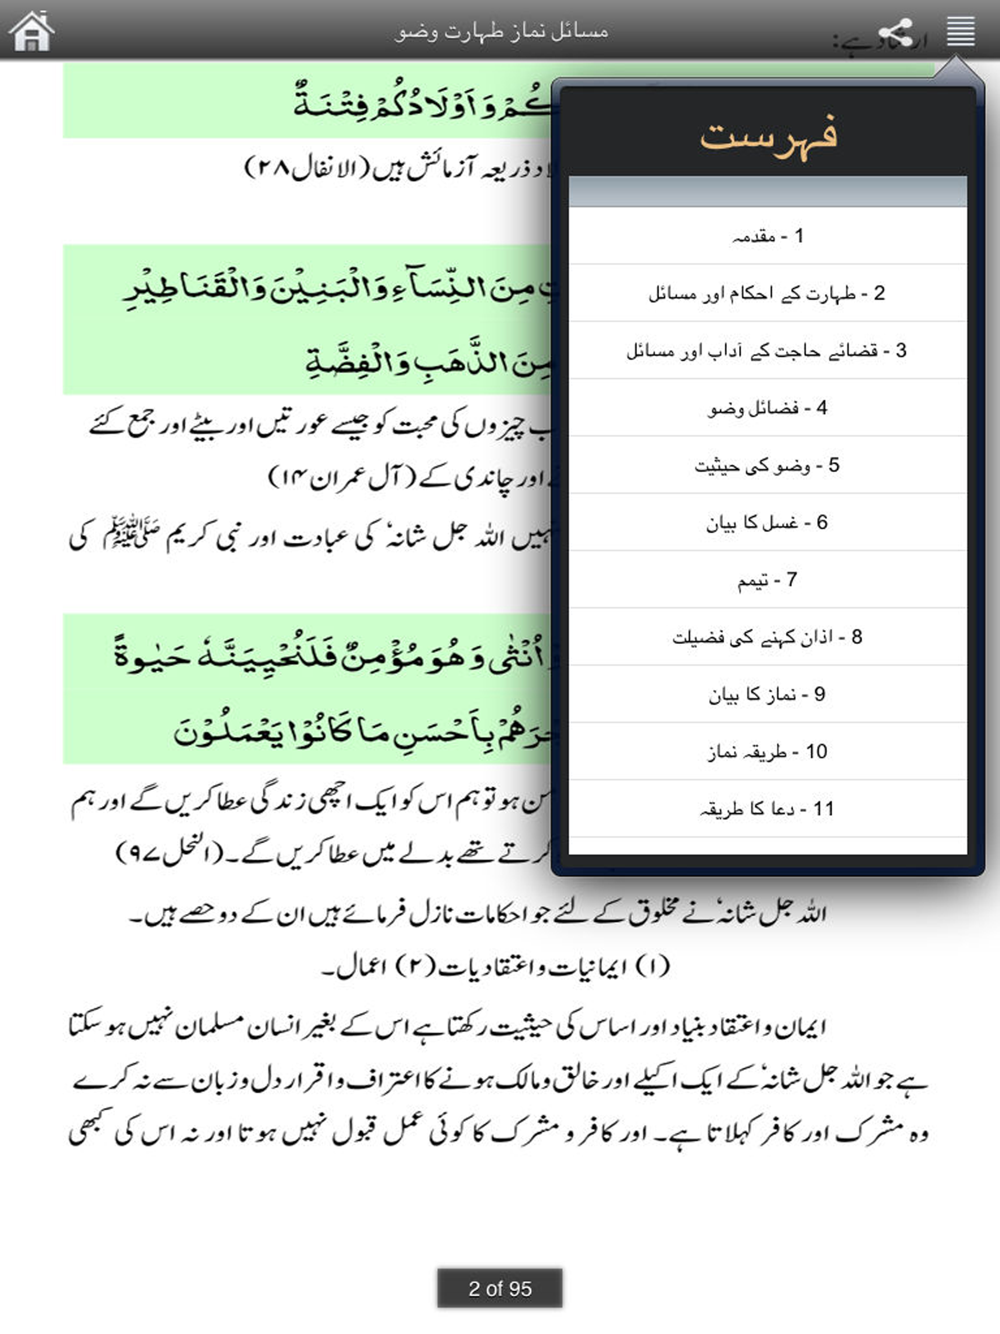 مسائل نماز طہارت وضو
فہرست
1 - مقدمہ
2 - طہارت کے احکام اور مسائل
3 - قضائے حاجت کے آداب اور مسائل
4 - فضائل وضو
5 - وضو کی حیثیت
6 - غسل کا بیان
7 - تیمم
8 - اذان کہنے کی فضیلت
9 - نماز کا بیان
10 - طریقہ نماز
11 - دعا کا طریقہ
كُمْ وَ اَوْلَادُكُمْ فِتْنَةٌ
ذریعہ آزمائش ہیں (الانفال ۲۸)
مِنَ النِّسَآءِ وَالْبَنِيْنَ وَالْقَنَاطِيْرِ
مِنَ الذَّهَبِ وَالْفِضَّةِ
چیزوں کی محبت کو جیسے عورتیں اور بیٹے اور جمع کئے
اور چاندی کے (آل عمران ۱۴)
نہیں اللہ جل شانہٗ کی عبادت اور نبی کریم ﷺ کی
اُنْثٰى وَ هُوَ مُؤْمِنٌ فَلَنُحْيِيَنَّهٗ حَيٰوةً
بِاَحْسَنِ مَا كَانُوْا يَعْمَلُوْنَ
ہو تو ہم اس کو ایک اچھی زندگی عطا کریں گے اور ہم
کرتے تھے بدلے میں عطا کریں گے۔ (النحل ۹۷)
اللہ جل شانہٗ نے مخلوق کے لئے جو احکامات نازل فرمائے ہیں ان کے دو حصے ہیں۔
(۱) ایمانیات و اعتقادیات (۲) اعمال۔
ایمان و اعتقاد بنیاد اور اساس کی حیثیت رکھتا ہے اس کے بغیر انسان مسلمان نہیں ہو سکتا
ہے جو اللہ جل شانہٗ کے ایک اکیلے اور خالق و مالک ہونے کا اعتراف و اقرار دل و زبان سے نہ کرے
وہ مشرک اور کافر کہلاتا ہے۔ اور کافر و مشرک کا کوئی عمل قبول نہیں ہوتا اور نہ اس کی کبھی
2 of 95